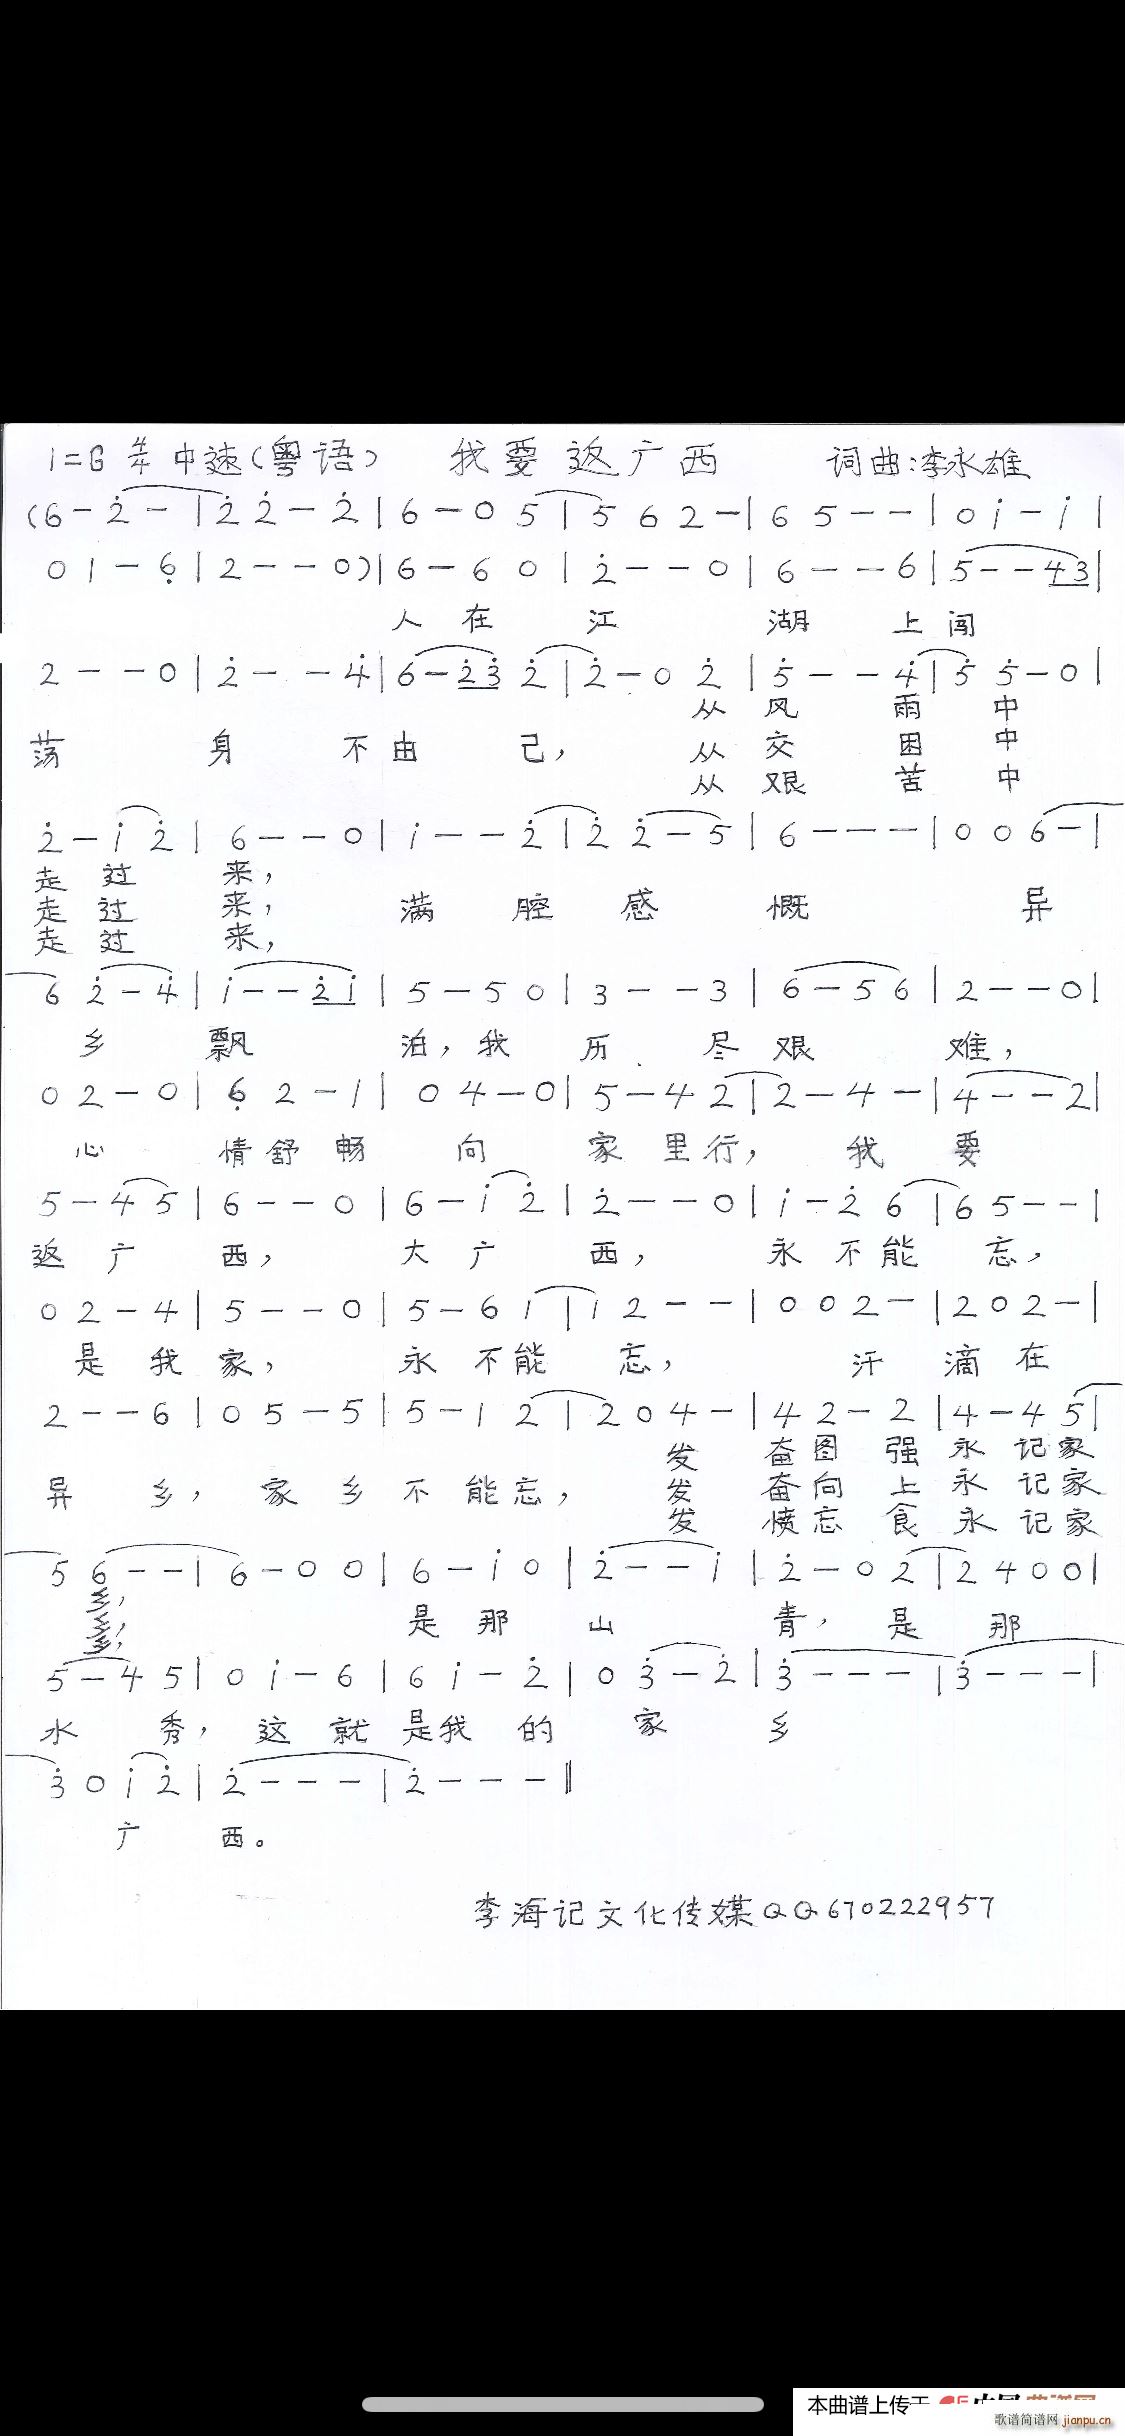 1=G 4/4 中速(粤语) 我要返广西 词曲:李永雄
(6 - 2̇ - | 2̇ 2̇ - 2̇ | 6 - 0 5 | 5 6 2 - | 6 5 - - | 0 i - i |
0 1 - 6̣ | 2 - - 0) | 6 - 6 0 | 2̇ - - 0 | 6 - - 6 | 5 - - 4 3 |
人 在 江 湖 上 闯
2 - - 0 | 2̇ - - 4̇ | 6 - 2̇ 3̇ 2̇ | 2̇ - 0 2̇ | 5̇ - - 4̇ | 5̇ 5̇ - 0 |
从 风 雨 中
荡 身 不 由 己, 从 交 困 中
从 艰 苦 中
2̇ - i 2̇ | 6 - - 0 | i - - 2̇ | 2̇ 2̇ - 5 | 6 - - - | 0 0 6 - |
走 过 来,
走 过 来, 满 腔 感 慨 异
走 过 来,
6 2̇ - 4̇ | i - - 2̇ i | 5 - 5 0 | 3 - - 3 | 6 - 5 6 | 2 - - 0 |
乡 飘 泊, 我 历 尽 艰 难,
0 2 - 0 | 6̣ 2 - 1 | 0 4 - 0 | 5 - 4 2 | 2 - 4 - | 4 - - 2 |
心 情 舒 畅 向 家 里 行, 我 要
5 - 4 5 | 6 - - 0 | 6 - i 2̇ | 2̇ - - 0 | i - 2̇ 6 | 6 5 - - |
返 广 西, 大 广 西, 永 不 能 忘,
0 2 - 4 | 5 - - 0 | 5 - 6 1 | 1 2 - - | 0 0 2 - | 2 0 2 - |
是 我 家, 永 不 能 忘, 汗 滴 在
2 - - 6 | 0 5 - 5 | 5 - 1 2 | 2 0 4 - | 4 2 - 2 | 4 - 4 5 |
发 奋 图 强 永 记 家
异 乡, 家 乡 不 能 忘, 发 奋 向 上 永 记 家
发 愤 忘 食 永 记 家
5 6 - - | 6 - 0 0 | 6 - i 0 | 2̇ - - i | 2̇ - 0 2 | 2 4 0 0 |
乡,
乡, 是 那 山 青, 是 那
乡,
5 - 4 5 | 0 i - 6 | 6 i - 2̇ | 0 3̇ - 2̇ | 3̇ - - - | 3̇ - - - |
水 秀, 这 就 是 我 的 家 乡
3̇ 0 i 2̇ | 2̇ - - - | 2̇ - - - ‖
广 西。
李海记文化传媒QQ670222957
本曲谱上传于
歌谱简谱网 jianpu.cn